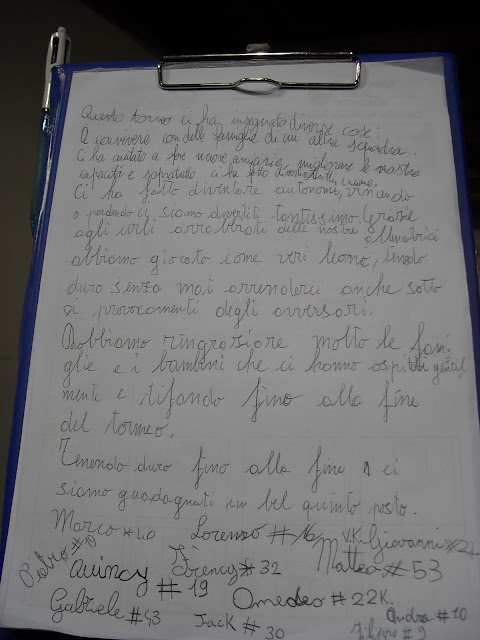 Questo torneo ci ha insegnato diverse cose:
A convivere con delle famiglie di un altra squadra.
Ci ha aiutato a fare nuove amicizie, migliorare le nostre
capacità e sopratutto ci ha fatto
Ci ha fatto diventare autonomi, vincendo
o perdendo ci siamo divertiti tantissimo. Grazie
agli urli arrabbiati delle nostre allenatrici
abbiamo giocato come veri leoni, tenendo
duro senza mai arrenderci anche sotto
i provocamenti degli avversari.
Dobbiamo ringraziare molto le fami-
glie e i bambini che ci hanno ospitati gentil
mente e tifando fino alla fine
del torneo.
Tenendo duro fino alla fine ci
siamo guadagnati un bel quinto posto.
Marco #40 Lorenzo #16 V.K. Giovanni #21
Pietro #19 Quincy #19 Sirency #32 Matteo #53
Gabriele #43 Jack #30 Omedeo #22K. Andrea #10
#9